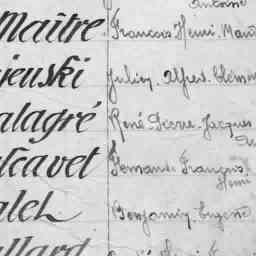 Antoine
Maître François Henri Mau
jeuski Julien Alfred Clémen
alagré René Pierre Jacques
scavet Fernand François
Henri
alek Benjamin Eugène
llard